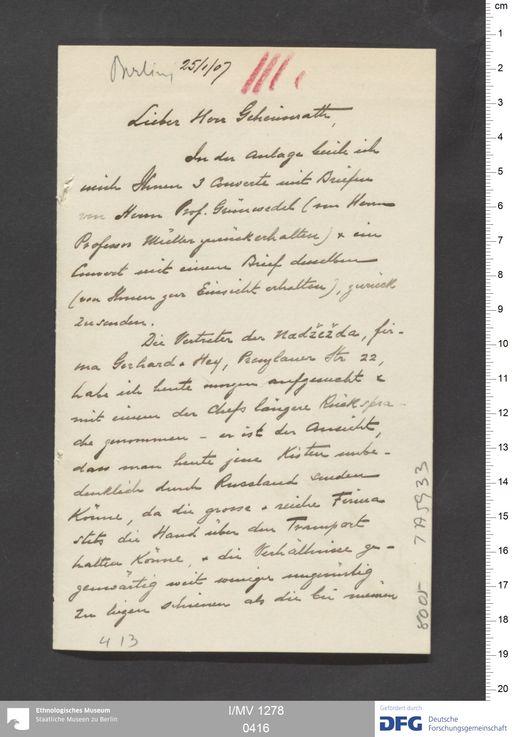 Berlin, 25/1/07
Lieber Herr Geheimrath,
In der Anlage beeile ich
mich Ihnen 3 Converte mit Briefen
von Herrn Prof. Grünwedel (von Herrn
Professor Müller zurückerhalten) & ein
Convert mit einem Brief desselben
(von Ihnen zur Einsicht erhalten), zurück
zusenden.
Die Vertreter der Nadžežda, fir-
ma Gerhard & Hey, Prenzlauer Str 22,
habe ich heute morgen aufgesucht &
mit einem der Chefs längere Rückspra-
che genommen – er ist der Ansicht,
dass man heute jene Kisten unbe-
denklich durch Russland senden
könne, da die grosse & reiche Firma
stets die Hand über den Transport
halten könne, & die Verhältnisse ge-
genwärtig weit weniger ungünstig
zu liegen schienen als die bei meinen
4 13
8005
7 A5933
cm
1
2
3
4
5
6
7
8
9
10
11
12
13
14
15
16
17
18
19
20
Ethnologisches Museum
Staatliche Museen zu Berlin
I/MV 1278
0416
Gefördert durch
DFG Deutsche
Forschungsgemeinschaft